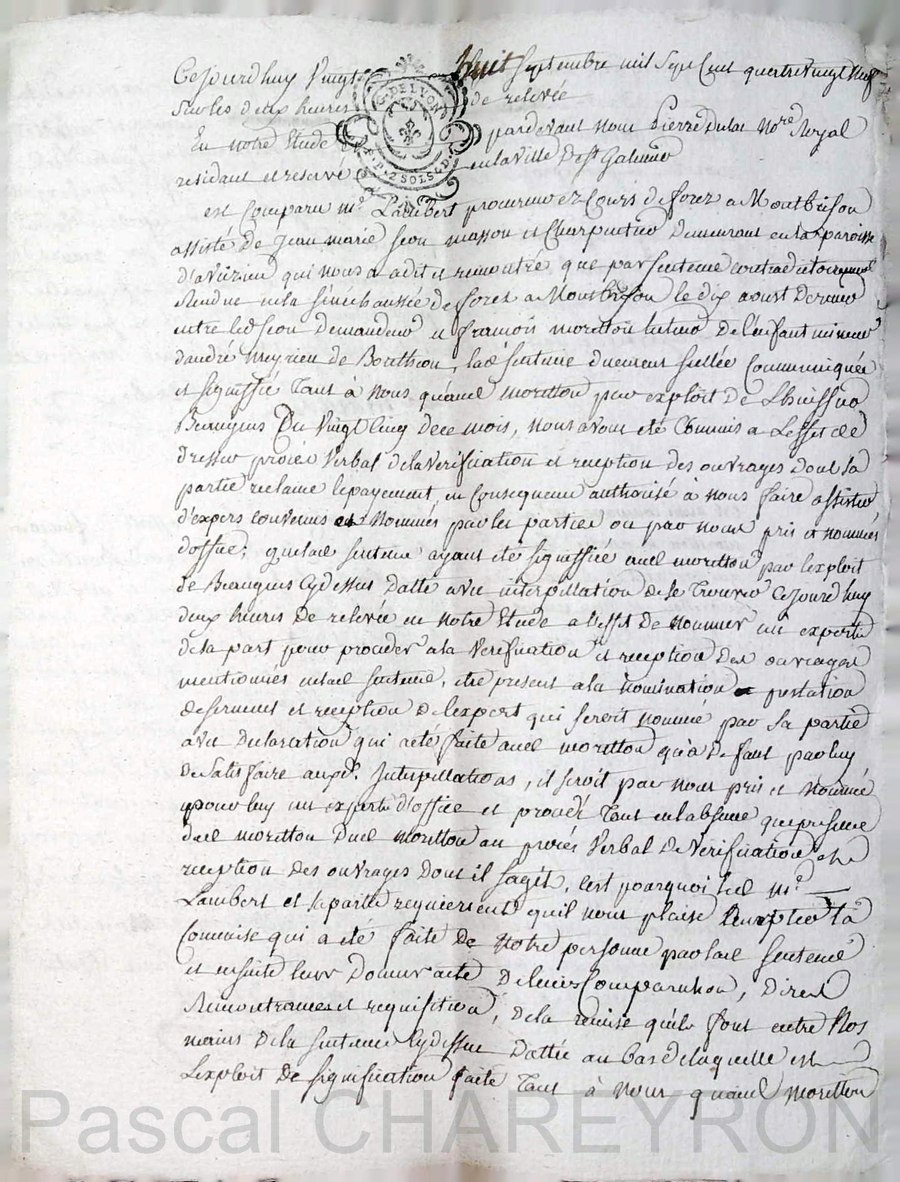 Cejourdhuy Vingt huit Septembre mil Sept Cent quatrevingt neuf
Surles deux heures de relevée
En notre Etude pardevant nous Pierre Dulac Nore Royal
residant et reservé enlaville de st Galmier
G. DE LYON
2 SOLS 4 D.
est Comparu me Lambert procureur ez Cours de forez a Montbrison
assisté de Jean marie seon masson et Charpentier Demeurant en la paroisse
d'aveizieu qui nous a dit et remontré que par sentence contradictoirement
Rendue en la sénéchaussée de forez a Montbrison le dix aoust Dernier
entre led seon Demandeur et francois moretton tuteur de l'enfant mineur
dandré meyrieu de Bouthéon, lade sentence duement scellée Communiquée
et signiffié Tant à nous quaud moretton par exploit de Lhuissier
Beaugius Du Vingt Cinq de ce mois, nous avons été Commis a Leffet de
dresser procès Verbal de la verification et reception des ouvrages dont sa
partie reclame le payement, en Consequence authorisé à nous faire assister
d'expers convenus et Nommés par les parties ou par nous pris et nommés
d'office; quelad sentence ayant eté signiffiée aud moretton par lexploit
de Beaugius Cydessus datté avec interpellation de se Trouver Cejourdhuy
deux heures De relevée en notre Etude a leffet De nommer un experts
de sa part pour proceder a la verification et reception Des ouvrages
mentionnés en lad sentence, etre present a la nomination prestation
de serment et reception de lexpert qui seroit nommé par sa partie
avec Declaration qui a eté faite aud moretton qu'a Defaut par luy
de Satisfaire auxd. Interpellations, il seroit par nous pris et Nommé
pour luy un experts d'office et procedé Tant en labsence que presence
dud moretton Dud moretton au procès Verbal De Verification et
reception des ouvrages dont il sagit, cest pourquoi led me
Lambert et sa partie requierent quil nous plaise accepter la
Commise qui a eté faite De Notre personne par lad sentence
et ensuite leur Donner acte De leurs Comparution, Dires
Remontrances et requisition, de la remise quils font entre Nos
mains de la sentence Cydessus dattée au bas de laquelle est
Lexploit De signification faite Tant à nous quaud moretton
Pascal CHAREYRON